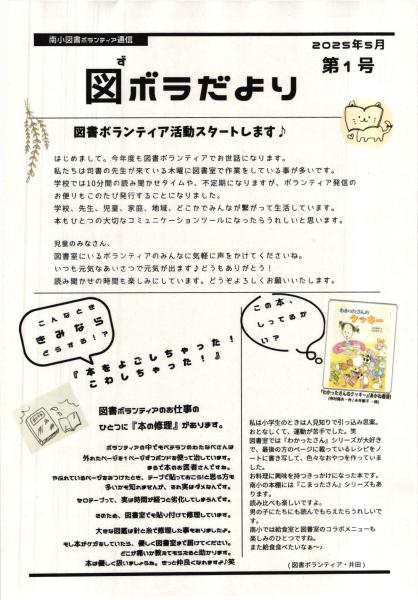 南小図書ボランティア通信
2025年5月
第1号
ず
図ボラだより
図書ボランティア活動スタートします♪
はじめまして。今年度も図書ボランティアでお世話になります。
私たちは司書の先生が来ている木曜に図書室で作業をしている事が多いです。
学校では10分間の読み聞かせタイムや、不定期になりますが、ボランティア発信の
お便りもこのたび発行することになりました。
学校、先生、児童、家庭、地域、どこかでみんなが繋がって生活しています。
本もひとつの大切なコミュニケーションツールになったらうれしいと思います。
児童のみなさん、
図書室にいるボランティアのみんなに気軽に声をかけてくださいね。
いつも元気なあいさつで元気が出ます♪どうもありがとう!
読み聞かせの時間も楽しみにしています。どうぞよろしくお願いいたします。
こんなとき
きみなら
どうする!?
『本をよごしちゃった!
こわしちゃった!』
図書ボランティアのお仕事の
ひとつに『本の修理』があります。
ボランティアの中でもベテランのわたなべさんは
外れたページを1ページずつボンドを使って治しています。
まるで本のお医者さんですね。
やぶれているページをみつけたとき、テープで貼っておこう!と思う方も
多いかも知れませんが、それ実はダメなんです。
セロテープって、実は時間が経つと劣化してしまうんです。
そのため、図書室でも貼り付けて修理しています。
大きな図鑑は針と糸で修理した事もありましたよ。
もし本がケガをしていたら、優しく図書室まで届けてください。
どこが痛いか教えてもらえると助かります。
本は優しく扱いましょうね。きっと仲良くなれますよ♪笑
この本、
しってるか
い?
わかったさんの
クッキー
『わかったさんのクッキー』(あかね書房)
(寺村輝夫・作/永井郁子・絵)
私は小学生のときは人見知りで引っ込み思案。
おとなしくて、運動が苦手でした。笑
図書室では『わかったさん』シリーズが大好き
で、最後の方のページに載っているレシピをノー
トに書き写して、色々なおやつを作っていまし
た。
お料理に興味を持つきっかけになった本です。
南小の本棚には『こまったさん』シリーズもあり
ます。
読み比べも楽しいですよ。
男の子にたちにも読んでもらえたらうれしいで
す。
南小では給食室と図書室のコラボメニューも
楽しみのひとつですね。
また給食食べたいなぁ〜♪
(図書ボランティア・井田)